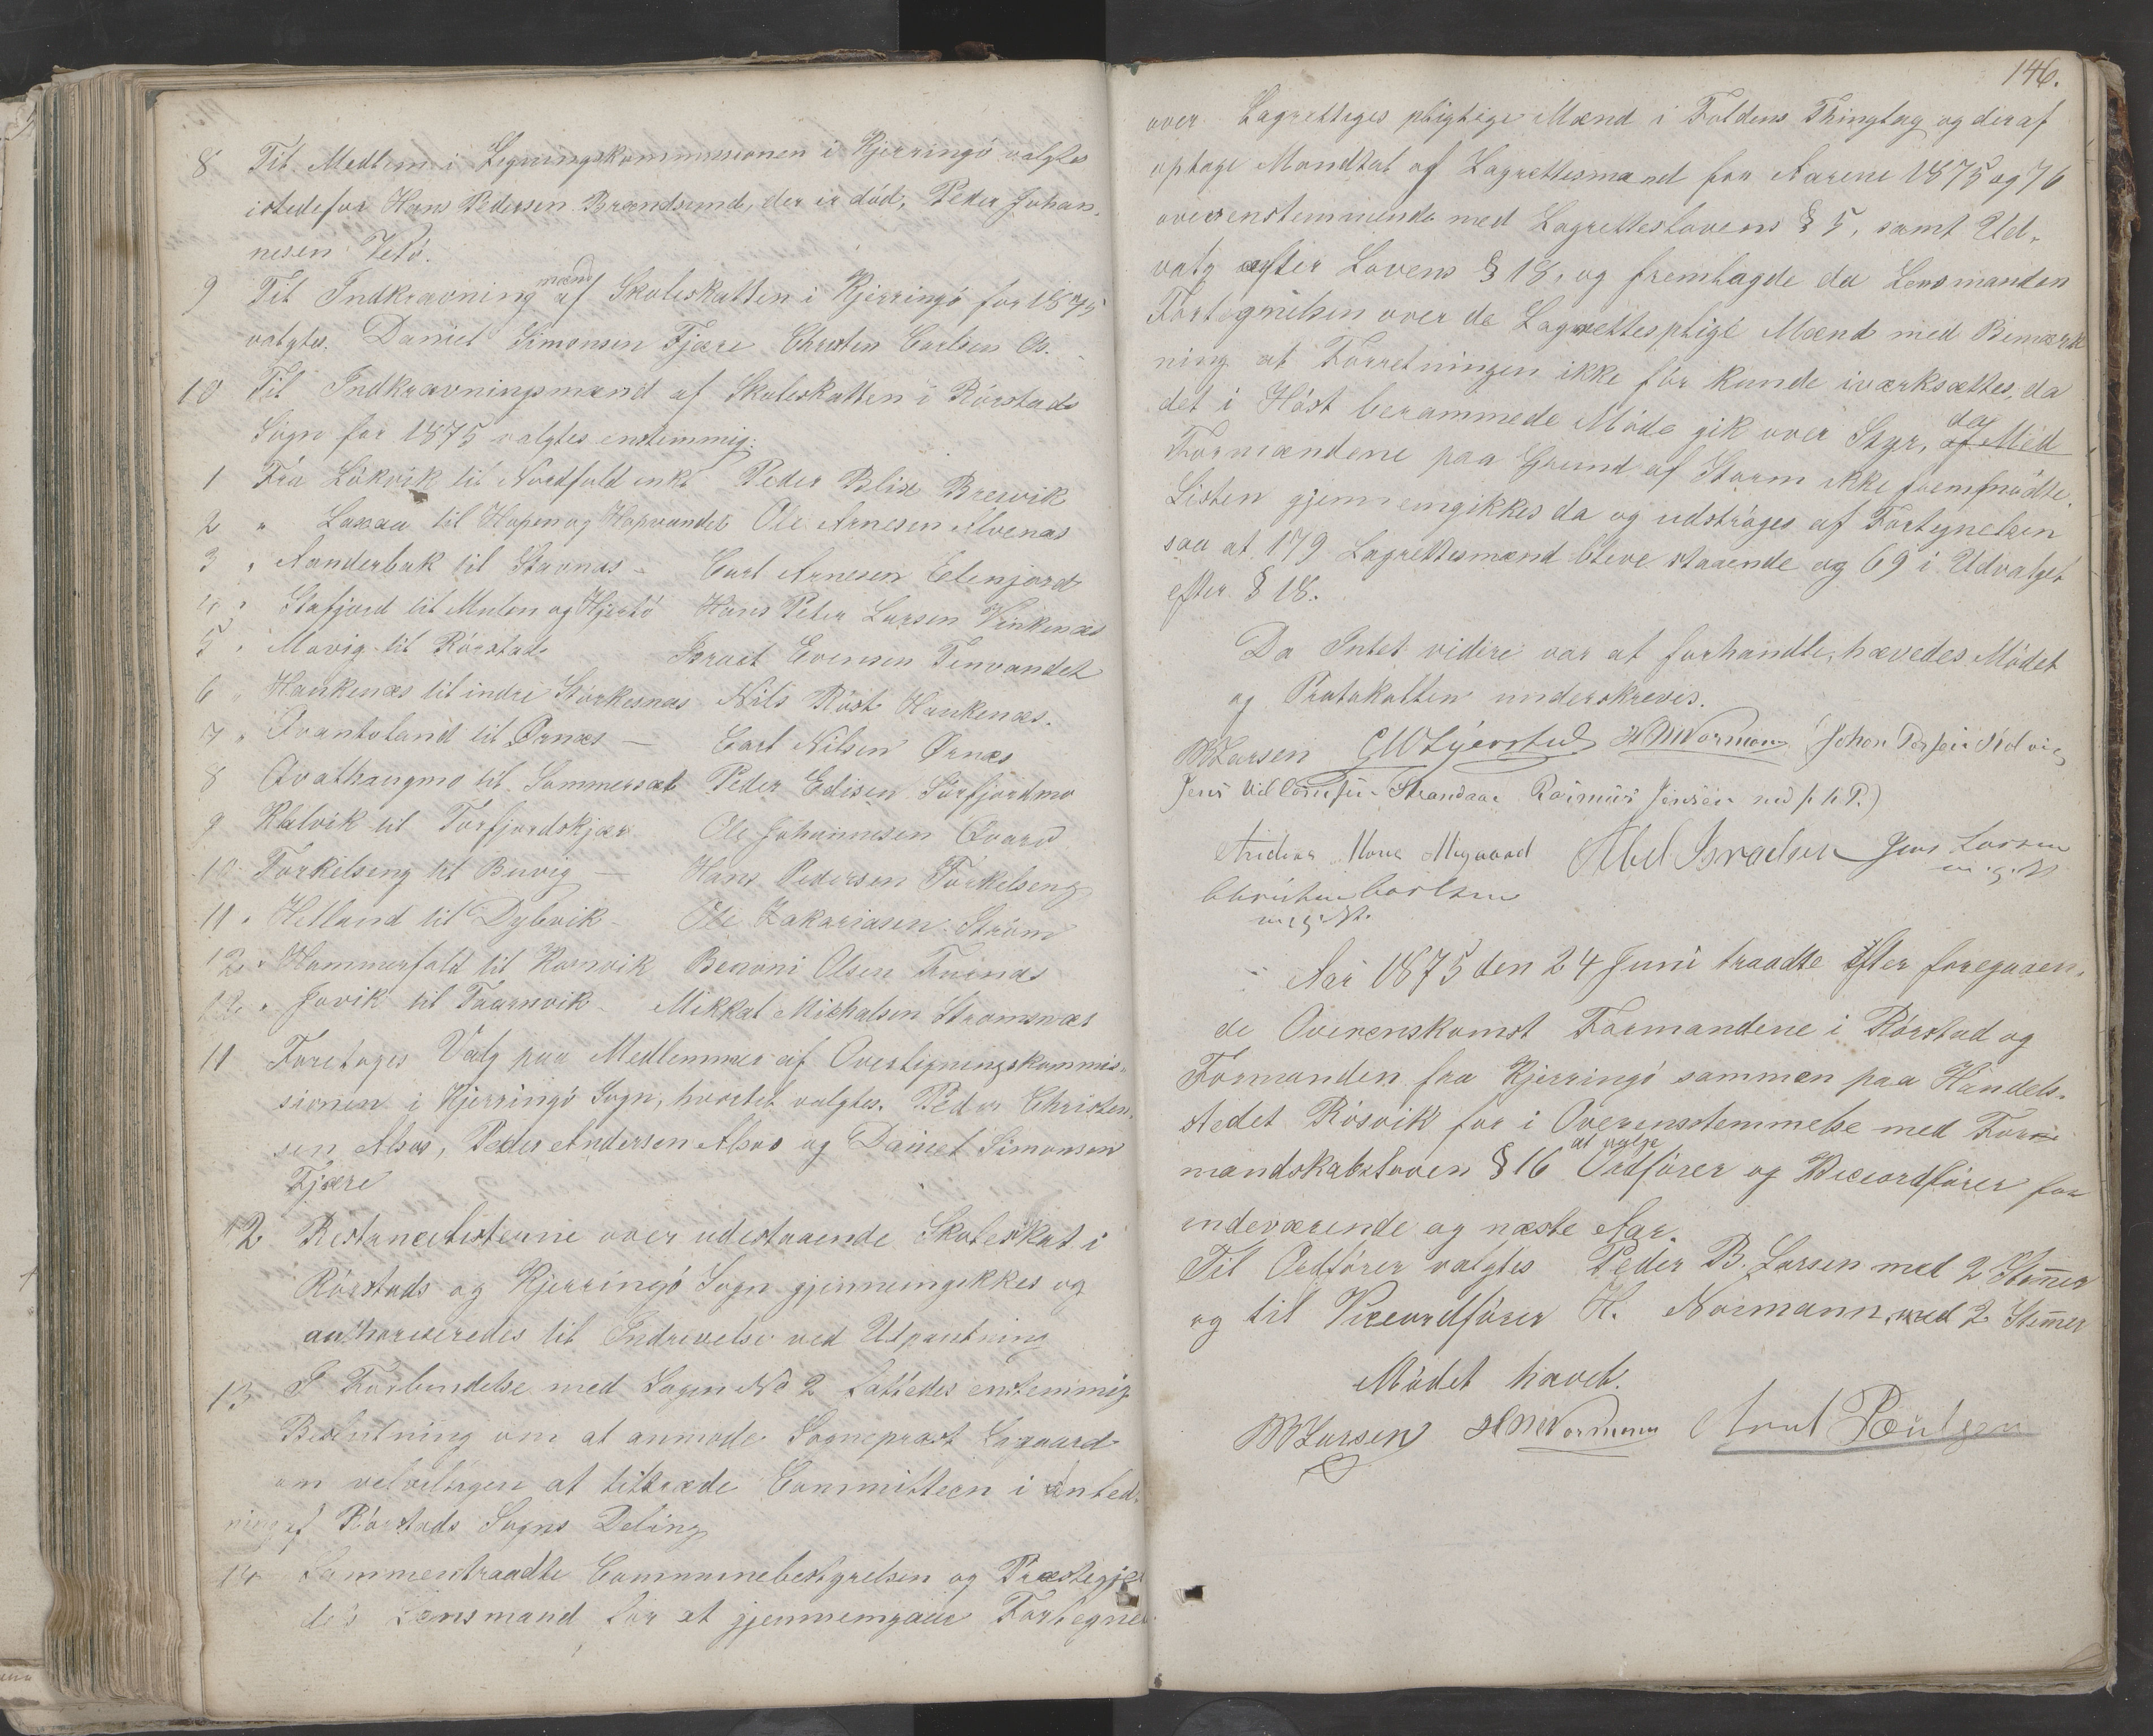 8 Til Medlem i Ligningskommissionen i Kjerringö valgtes
istedefor Hans Pedersen Brændsund, der er död, Peder Johan-
nesen Vetö.
9 Til Indkrævningmænd af Skoleskatten i Kjerringö for 1875
valgtes. Daniel Simonsen Fjære Christen Carlsen Os.
10 Til Indkrævningsmænd af Skoleskatten i Rörstads
Sogn for 1875 valgtes enstemmig:
1 Fra Lökvik til Nordfold inkl Peder Blix Brevik
2 " Laxaa til Hopen og Hopvandet Ole Arnesen Alvenæs
3 " Aanderbak til Stavnæs - Carl Arnesen Eelenjord
4 " Stafjord til Mulen og Hjertö Hans Peter Larsen Vinkenæs
5 " Movig til Rörstad Israel Evensen Tenvandet
6 " Hankenæs til indre Storkesnæs Nils Röst Hankenæs.
7 " Qvantoland til Ørnæs - Carl Nilsen Ørnæs
8 Qvalhaugmo til Sommersæt Peder Edisen Sörfjordmo
9 Kalvik til Torfjordskjær Ole Johannesen Qvarv
10 Torkelseng til Buvig - Hans Pedersen Torkelseng
11 " Helland til Dybvik - Ole Zakariasen Ström
12 " Hammerfald til Kornvik Benoni Olsen Trunæs
12 " Jovik til Taarnvik - Mikkal Mickalsen Strömsnæs
11 Foretoges Valg paa Medlemmer af Overligningskommis-
sionen i Kjerringö Sogn, hvortil valgtes. Peder Christen-
sen Alsos, Peder Andersen Alsos og Daniel Simonsen
Fjære
12 Restancelisterne over udestaaende Skoleskat i
Rörstads og Kjerringö Sogn gjennemgikkes og
authoriseredes til Indrivelse ved Udpantning
13 I Forbindelse med Sagen No 2 fattedes enstemmig
Beslutning om at anmode Sogneprest Lygaard
om velvilligen at tiltræde Committeen i Anled-
ning af Rörstads Sogns Deling
14 Sammentraadte Communebestyrelsen og Præstegjel
dets Lensmand for at gjennemgaae Fortegnel
146.
over Lagrettiges pligtige Mænd i Foldens Thinglag og deraf
optage Mandtal af Lagrettesmænd for Aarene 1875 og 76
overenstemmende med Lagretteslovens § 5, samt Ud-
valg efter Lovens § 18, og fremlagde da Lensmanden
Fortegnelsen over de Lagrettespligte Mænd med Bemærk
ning at Forretningen ikke för kunde iværksættes, da
det i Höst berammede Möde gik over Styr, da af Med
Formændene paa Grund af Storm ikke fremmödte.
Listen gjennemgikkes da og udströges af Fortegnelsen
saa at 179 Lagrettesmænd bleve staaende og 69 i Udvalget
efter § 18.
Da Intet videre var at forhandle, hævedes Mödet
og Protokollen underskreves.
PBLarsen HNNormann Johan
Jens Strandaa Rasmus Jensen med p. k. P.)
Anders Moses Abel Israelsen Jens Larsen
m. g. P.
Christen Carlsen
m. g. P.
Aar 1875 den 24 Juni traadte efter foregaaen-
de Overenskomst Formændene i Rörstad og
Formanden fra Kjerringö sammen paa Handels-
stedet Rösvik for i Overensstemmelse med For-
mandskabsloven § 16 at vælge Ordförer og Viceordförer for
indeværende og næste Aar.
Til Ordförer valgtes Peder B. Larsen med 2 Stemmer
og til Viceordförer H. Normann, med 2 Stemmer
Mödet hævet.
PBLarsen HNNormann Arnt Poulsen